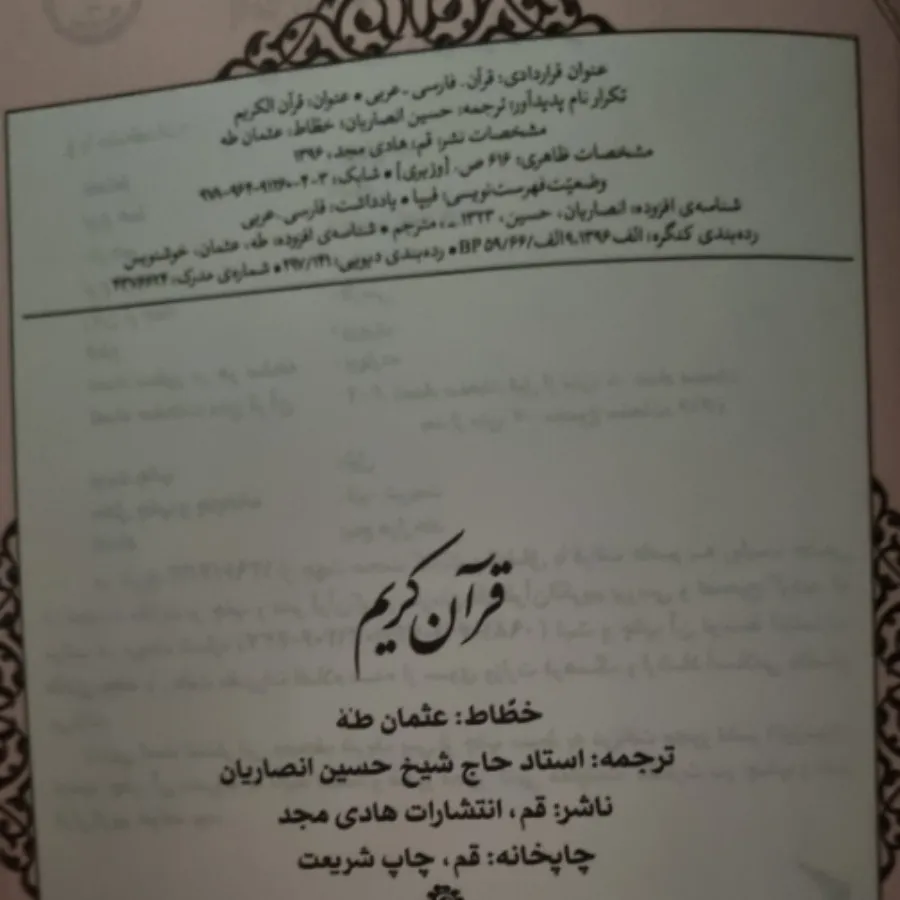 عنوان قراردادی: قرآن. فارسی ـ عربی • عنوان: قرآن الکریم
تکرار نام پدیدآور: ترجمه: حسین انصاریان؛ خطّاط: عثمان طه
مشخصات نشر: قم: هادی مجد، ۱۳۹۶
مشخصات ظاهری: ۶۱۶ ص. [وزیری] • شابک:
وضعیّت فهرست‌نویسی: فیپا • یادداشت: فارسی ـ عربی
شناسه‌ی افزوده: انصاریان، حسین، ۱۳۲۳ ـ، مترجم • شناسه‌ی افزوده: طه، عثمان، خوشنویس
رده‌بندی کنگره: BP ۵۹/۶۶/الف۹،۱۳۹۶ الف • رده‌بندی دیویی: ۲۹۷/۱۴۱ • شماره‌ی مدرک:
قرآن کریم
خطّاط: عثمان طٰهٰ
ترجمه: استاد حاج شیخ حسین انصاریان
ناشر: قم، انتشارات هادی مجد
چاپخانه: قم، چاپ شریعت